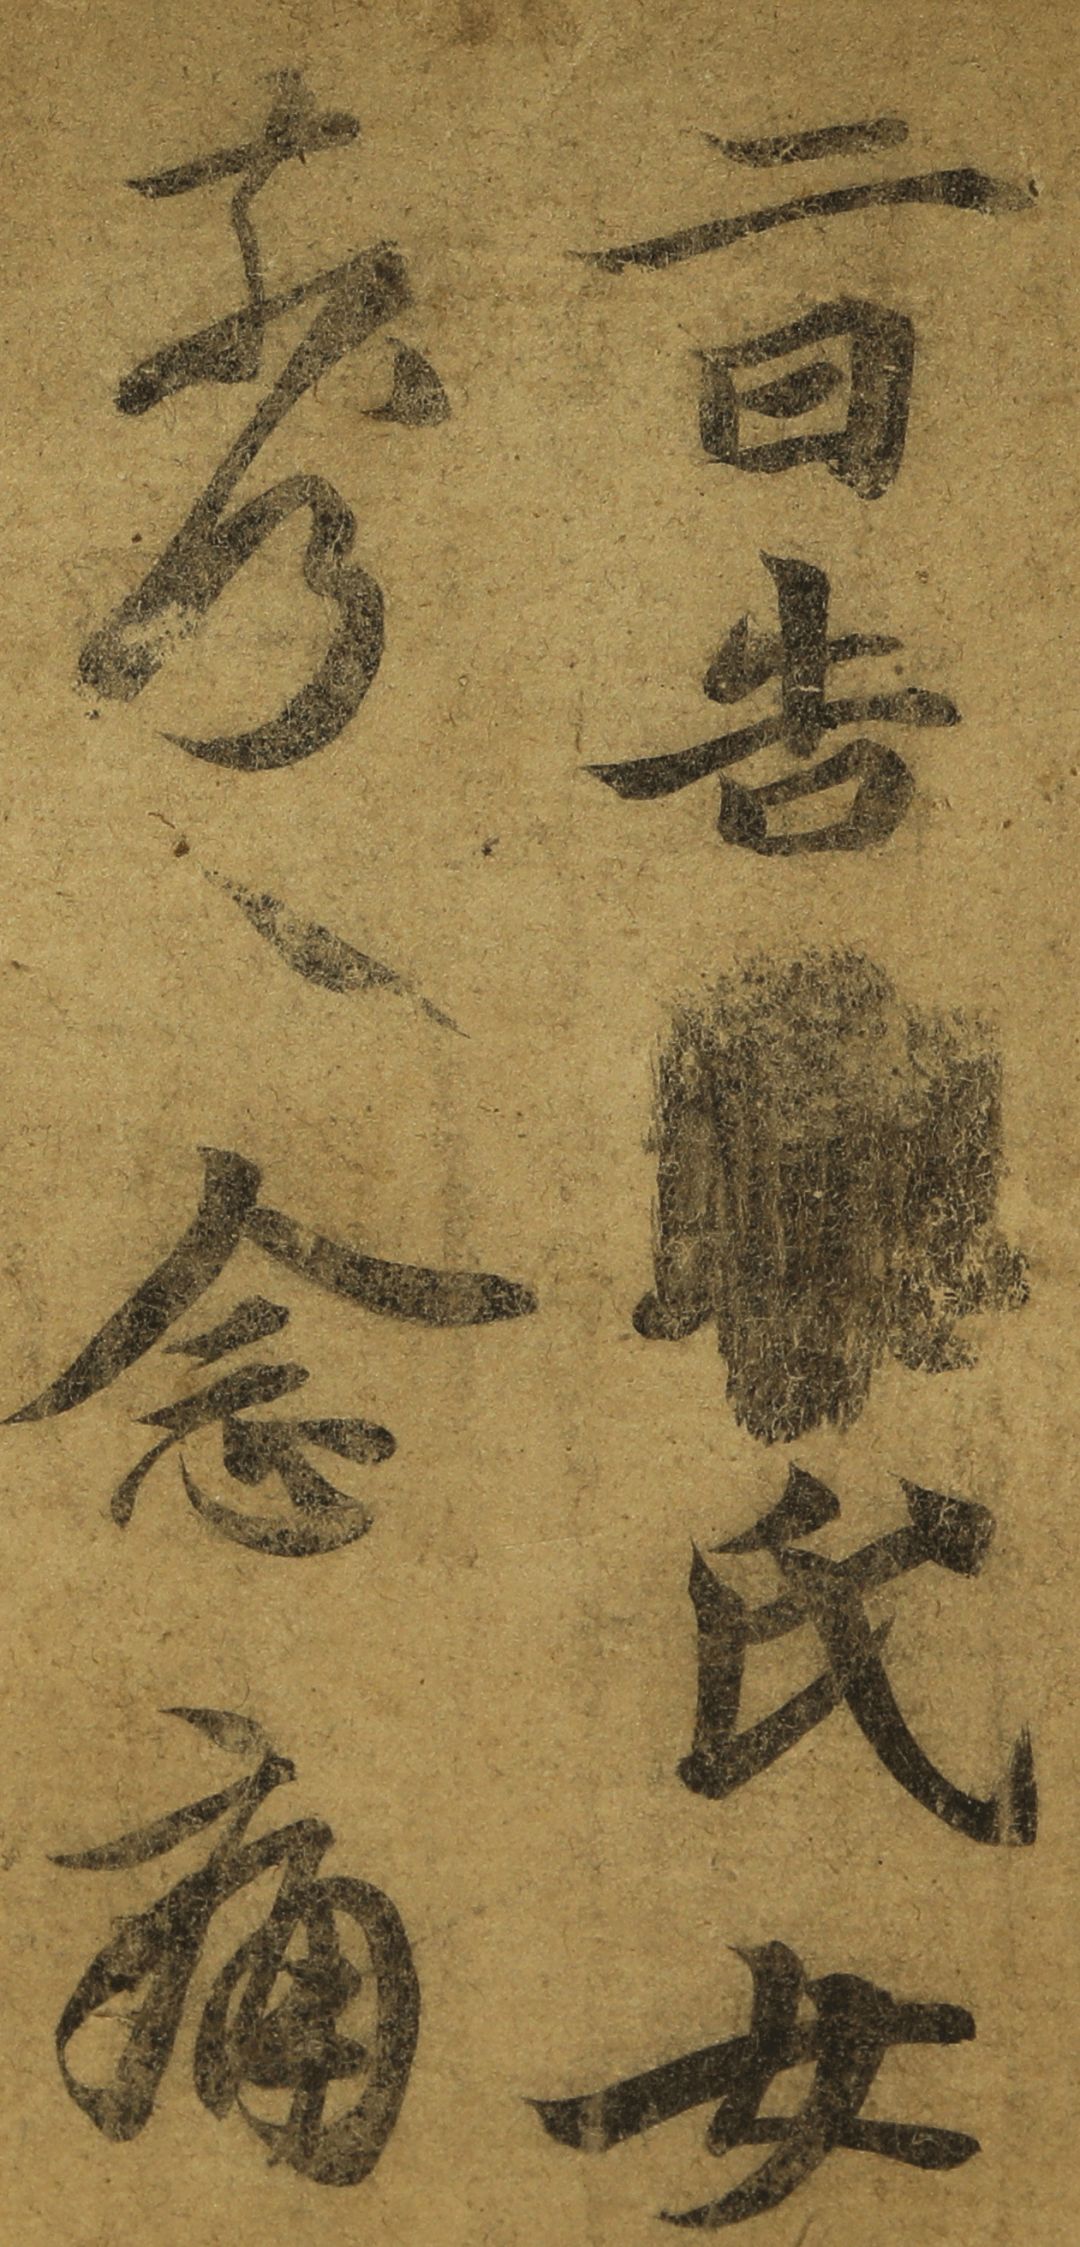 二日告氏女
奈何〻念痛